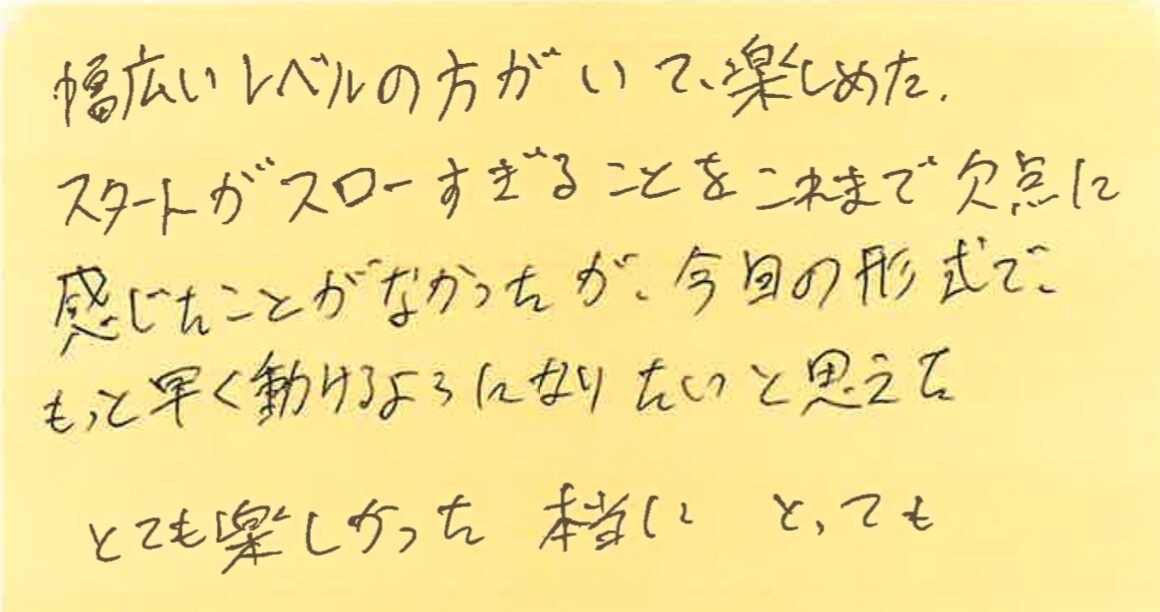 幅広いレベルの方がいて、楽しめた.
スタートがスローすぎることをこれまで欠点に
感じたことがなかったが、今回の形式で、
もっと早く動けるようになりたいと思えた
とても楽しかった 本当に とっても